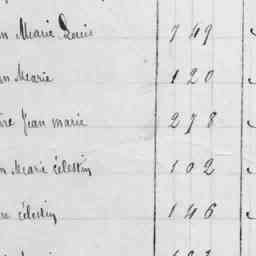 n Marie Louis 749
n Marie 120
re Jean marie 278
n Marie célestin 102
célestin 146